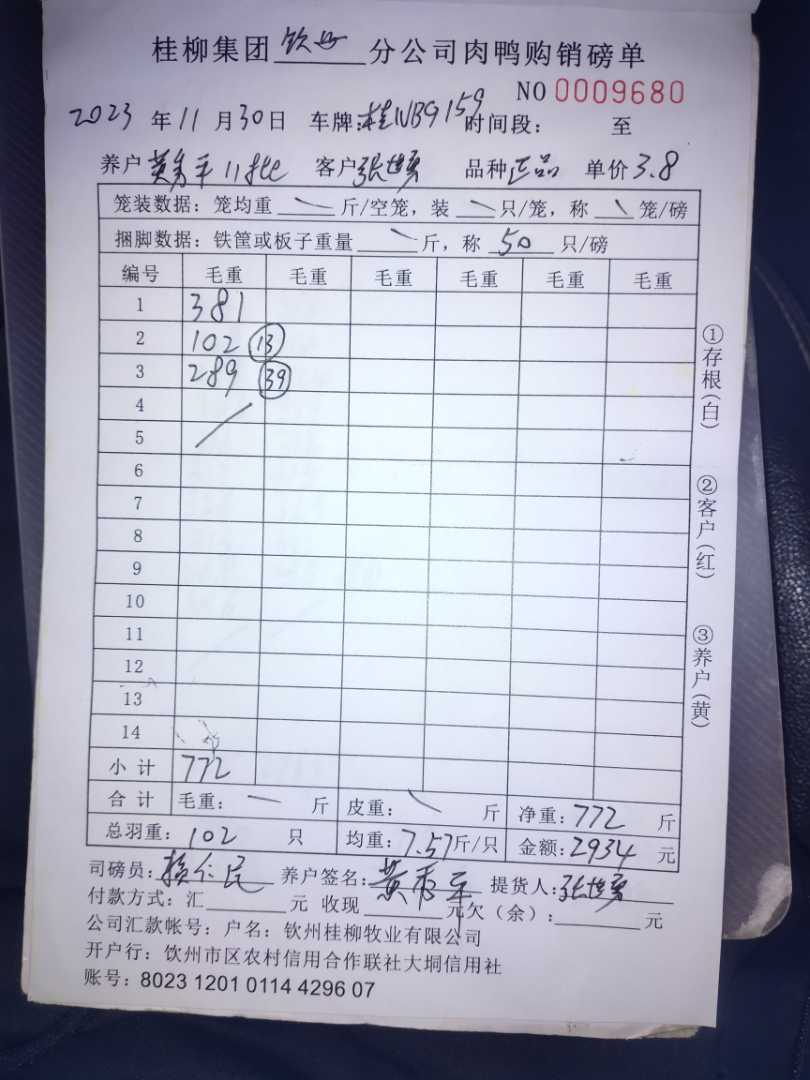 桂柳集团 钦州 分公司肉鸭购销磅单
NO 0009680
2023 年 11 月 30 日 车牌:桂NB9159 时间段: 至
养户 黄秀平 11批 客户 张世勇 品种 正品 单价 3.8
笼装数据:笼均重 \ 斤/空笼,装 \ 只/笼,称 \ 笼/磅
捆脚数据:铁筐或板子重量 \ 斤,称 50 只/磅
编号 毛重 毛重 毛重 毛重 毛重 毛重
1 381
2 102 ⑬
3 289 ㊴
4
5
6
7
8
9
10
11
12
13
14
小计 772
合计 毛重: — 斤 皮重: \ 斤 净重:772 斤
总羽重:102 只 均重:7.57斤/只 金额:2934 元
司磅员: 养户签名:黄秀平 提货人:张世勇
付款方式:汇 元 收现 元欠(余): 元
公司汇款帐号:户名:钦州桂柳牧业有限公司
开户行:钦州市区农村信用合作联社大垌信用社
账号:8023 1201 0114 4296 07
①存根(白)
②客户(红)
③养户(黄)